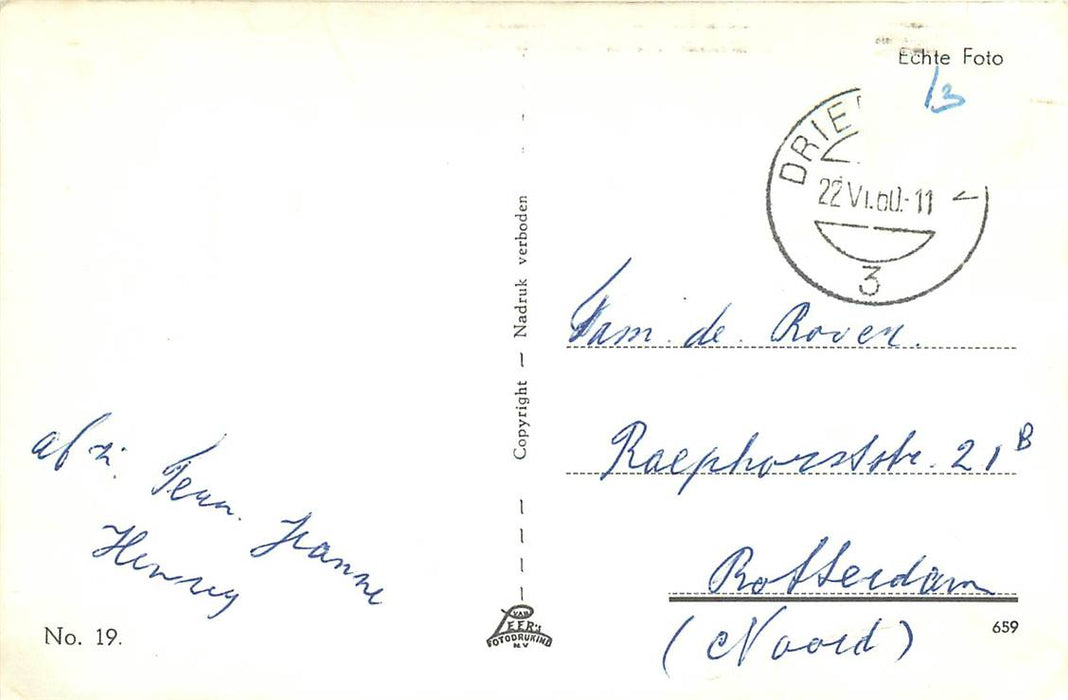 Echte Foto
13
DRIE
22 VI.60.-11
3
Fam. de. Rover.
Raephorststr. 21 B
Rotterdam
(Noord)
659
Copyright — Nadruk verboden
VAN
LEER's
FOTODRUKIND
N.V
afz.
Teun. Jeanne
Henny
No. 19.